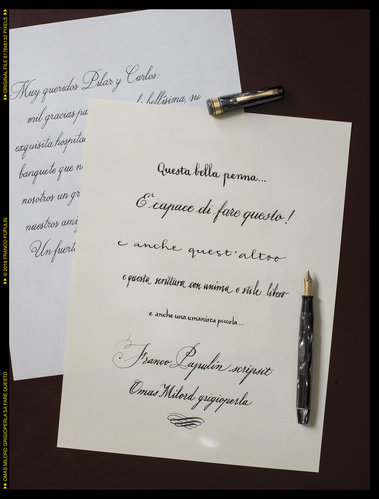 Muy queridos Pilar y Carlos:
mil gracias pa
bellísima, su
exquisita hospita
banquete que n
nosotros un gr
nuestros ami
Un fuert
Questa bella penna...
E' capace di fare questo!
e anche quest'altro
e questa scrittura con anima e stile libero
e anche una umanista piccola...
Franco Pupulin scripsit
Omas Milord grigioperla
OMAS MILORD GRIGIOPERLA SA FARE QUESTO
© 2018 FRANCO PUPULIN
ORIGINAL FILE 6176x8132 PIXELS